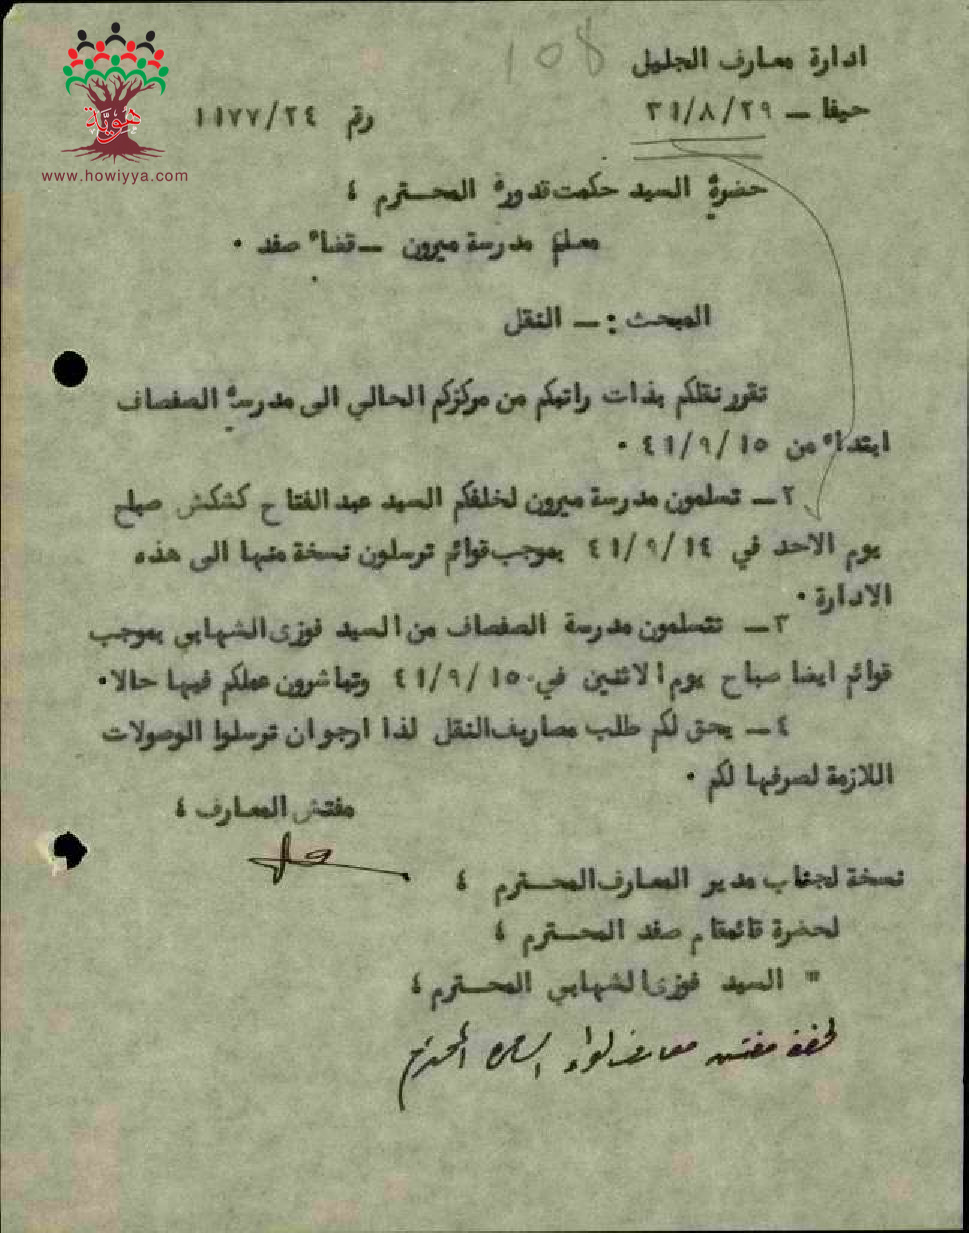 108
ادارة معارف الجليل
حيفا ــ ٣١/٨/٢٩
رقم ١١٧٧/٢٤
هويّة
www.howiyya.com
حضرة السيد حكمت قدورة المحترم ،
معلم مدرسة ميرون ــ قضاء صفد ٠
المبحث : ــ النقل
تقرر نقلكم بذات راتبكم من مركزكم الحالي الى مدرسة الصفصاف
ابتداء من ٤١/٩/١٥ ٠
٢ ــ تسلمون مدرسة ميرون لخلفكم السيد عبد الفتاح كشكش صباح
يوم الاحد في ٤١/٩/١٤ بموجب قوائم ترسلون نسخة منها الى هذه
الادارة ٠
٣ ــ تتسلمون مدرسة الصفصاف من السيد فوزى الشهابي بموجب
قوائم ايضا صباح يوم الاثنين في ٤١/٩/١٥ وتباشرون عملكم فيها حالا ٠
٤ ــ يحق لكم طلب مصاريف النقل لذا ارجو ان ترسلوا الوصولات
اللازمة لصرفها لكم ٠
مفتش المعارف ،
نسخة لجناب مدير المعارف المحترم ،
لحضرة قائمقام صفد المحترم ،
" السيد فوزى الشهابي المحترم ،
لحضرة مفتش معارف لواء السامرة المحترم